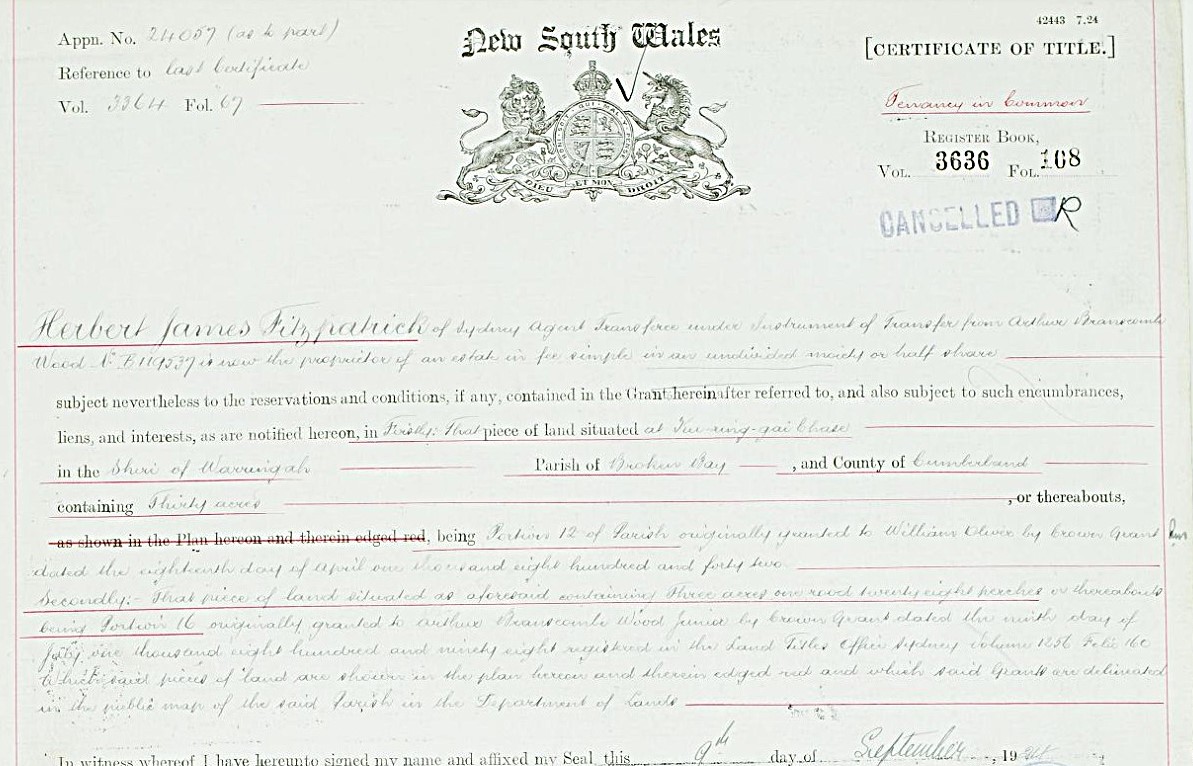 42443 7.24
Appn. No. 24057 (as to part)
New South Wales
[CERTIFICATE OF TITLE.]
Reference to Last Certificate
Vol. 3364 Fol. 67
Tenancy in Common
REGISTER BOOK,
VOL. 3636 FOL. 108
DIEU ET MON DROIT
CANCELLED R
Herbert James Fitzpatrick of Sydney Agent Transferee under Instrument of Transfer from Arthur Branscombe
Wood No. is now the proprietor of an estate in fee simple in an undivided moiety or half share
subject nevertheless to the reservations and conditions, if any, contained in the Grant hereinafter referred to, and also subject to such encumbrances,
liens, and interests, as are notified hereon, in Firstly: That piece of land situated at Ku-ring-gai Chase
in the Shire of Warringah Parish of Broken Bay , and County of Cumberland
containing Thirty acres , or thereabouts,
as shown in the Plan hereon and therein edged red, being Portion 12 of Parish originally granted to William Oliver by Crown Grant
dated the eighteenth day of April one thousand eight hundred and forty two
Secondly:- That piece of land situated as aforesaid containing Three acres one rood twenty eight perches or thereabouts
being Portion 16 originally granted to Arthur Branscombe Wood Junior by Crown Grant dated the ninth day of
one thousand eight hundred and ninety eight registered in the Land Titles Office Sydney Volume 1256 Folio 160
Which said pieces of land are shown in the plan hereon and therein edged red and which said Grants are delineated
in the public map of the said Parish in the Department of Lands
In witness whereof I have hereunto signed my name and affixed my Seal, this 9th day of September , 19